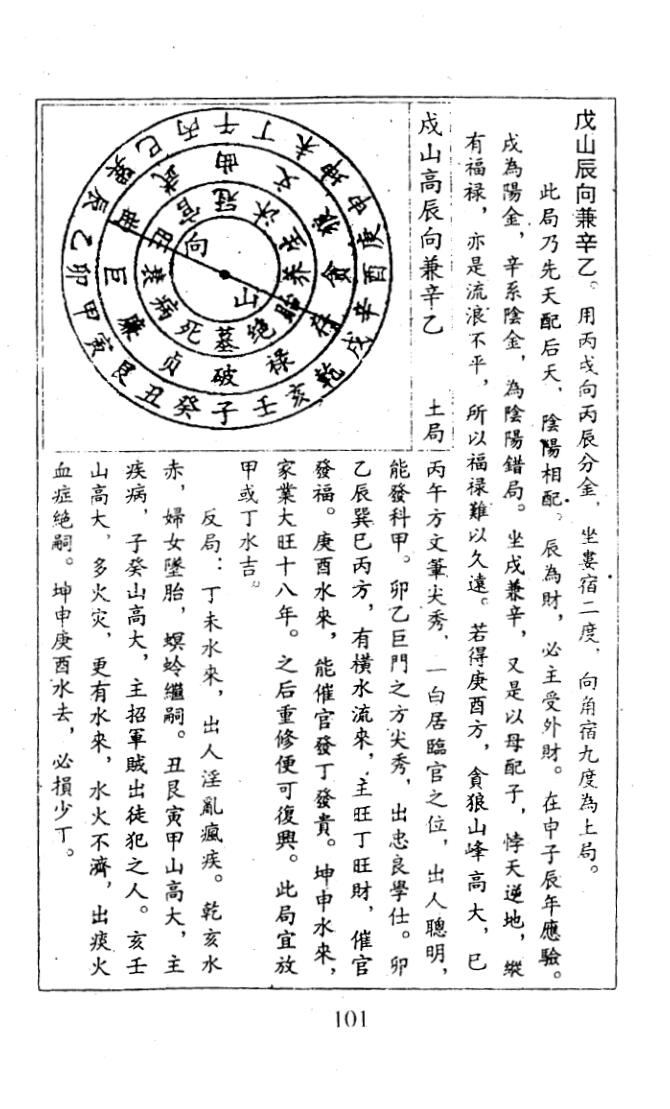 戊山辰向兼辛乙。用丙戌向丙辰分金，坐婁宿二度，向角宿九度為土局。
此局乃先天配后天，陰陽相配。辰為財，必主受外財。在申子辰年應驗。
戌為陽金，辛系陰金，為陰陽錯局。坐戌兼辛，又是以母配子，悖天逆地，縱
有福禄，亦是流浪不平，所以福禄難以久遠。若得庚酉方，貪狼山峰高大，巳
丙午方文筆尖秀，一白居臨官之位，出人聰明，
能發科甲。卯乙巨門之方尖秀，出忠良學仕。卯
乙辰巽巳丙方，有橫水流來，主旺丁旺財，催官
發福。庚酉水來，能催官發丁發貴。坤申水來，
家業大旺十八年。之后重修便可復興。此局宜放
甲或丁水吉。
反局：丁未水來，出人淫亂瘋疾。乾亥水
赤，婦女墜胎，螟蛉繼嗣。丑艮寅甲山高大，主
疾病，子癸山高大，主招軍賊出徒犯之人。亥壬
山高大，多火灾，更有水來，水火不濟，出痰火
血症絶嗣。坤申庚酉水去，必損少丁。
戌山高辰向兼辛乙 土局
午丁未坤申庚酉辛戌乾亥壬子癸丑艮寅甲卯乙辰巽巳丙
曲文狼貪存禄破贞廉巨武
冠沐生养胎絶墓死病衰旺官
向
山
101